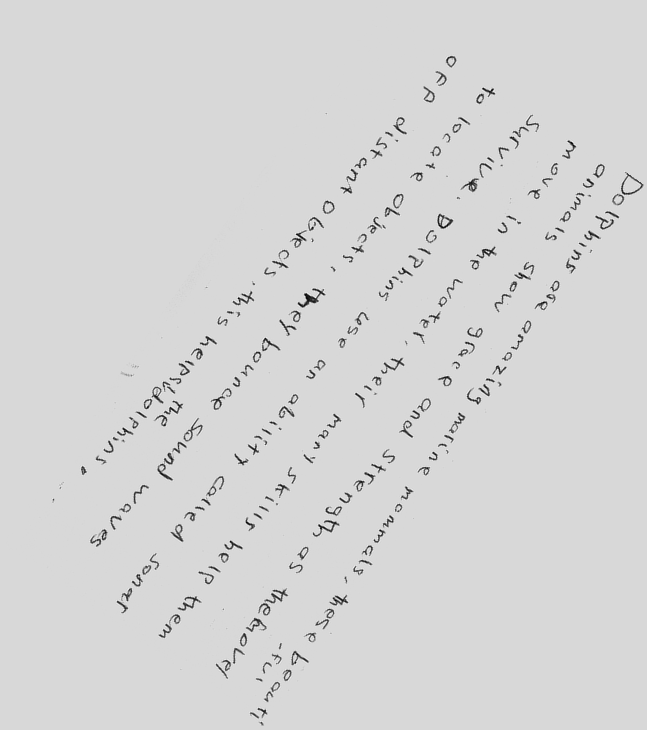 Dolphins are amazing marine mammals, these beauti
-ful
animals show grace and strength as
move in the water, their many skills help them
Survive. Dolphins use an ability called sonar
to locate objects, they bounce sound waves
off distant objects. this helps the dolphins.